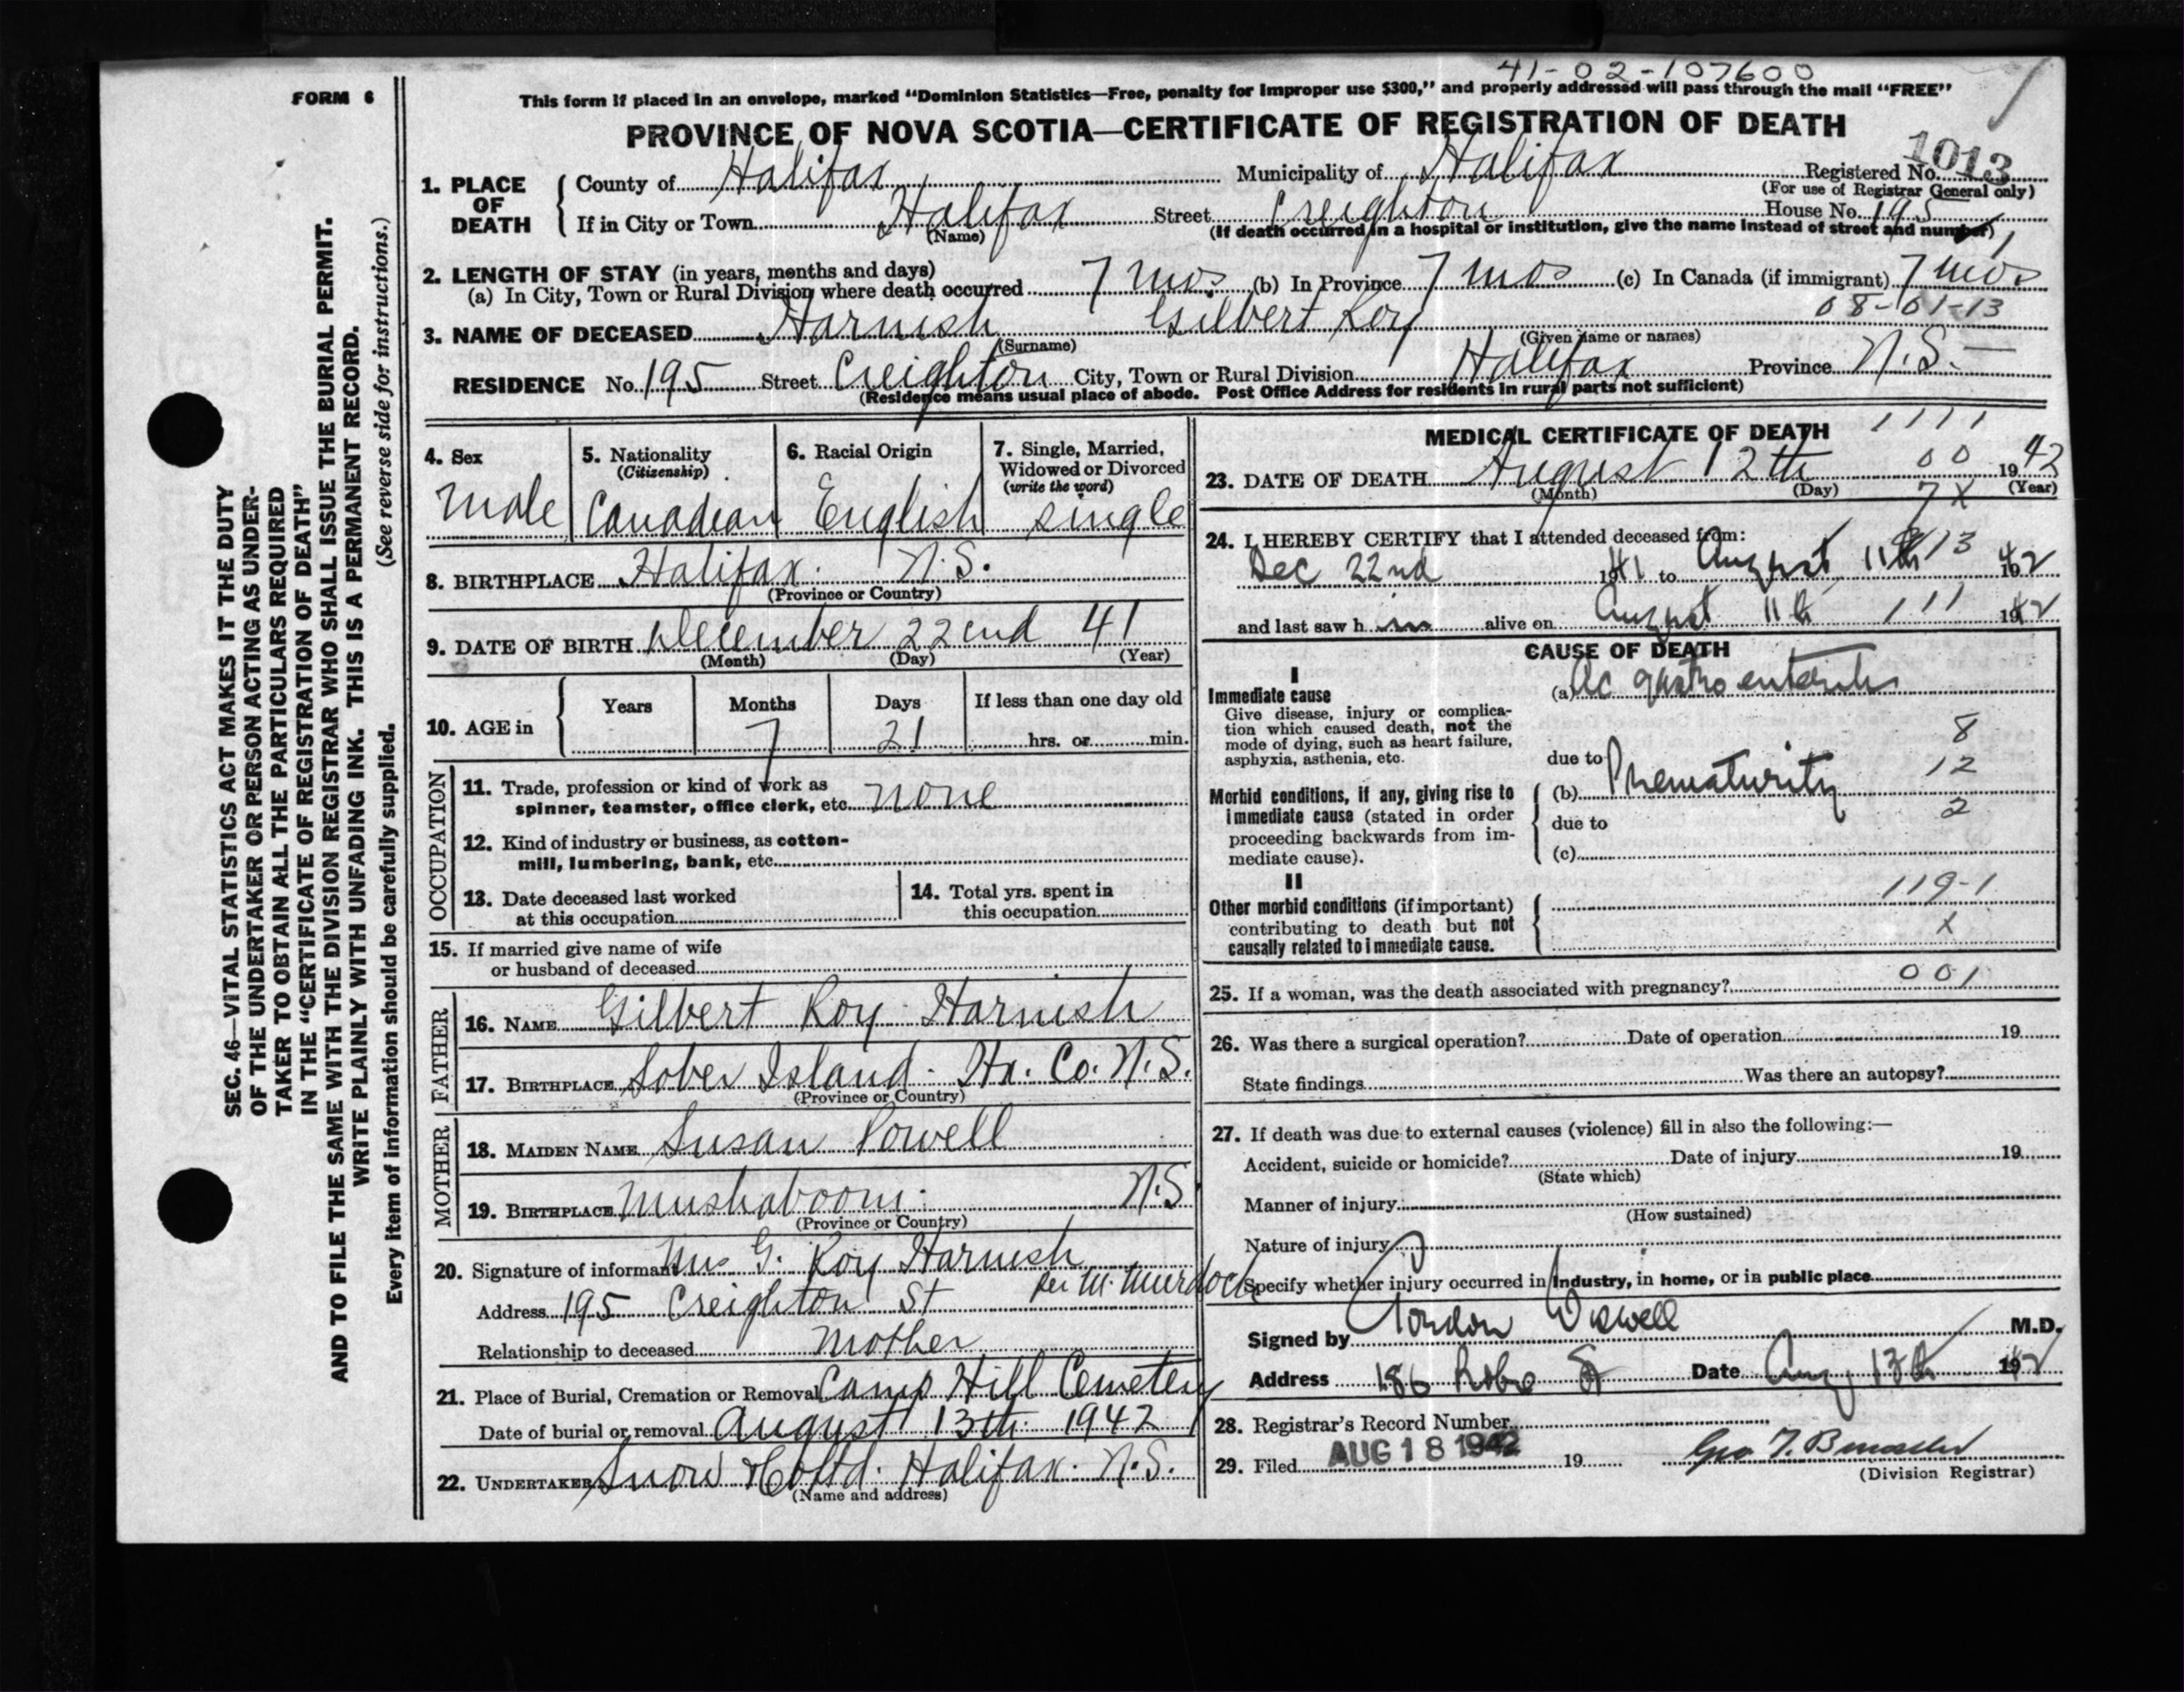 41-02-107600
FORM 6
This form if placed in an envelope, marked "Dominion Statistics—Free, penalty for improper use $300," and properly addressed will pass through the mail "FREE"
PROVINCE OF NOVA SCOTIA—CERTIFICATE OF REGISTRATION OF DEATH
1. PLACE OF DEATH
County of Halifax Municipality of Halifax Registered No. 1013
(For use of Registrar General only)
If in City or Town Halifax Street Creighton House No. 195
(Name) (If death occurred in a hospital or institution, give the name instead of street and number)
2. LENGTH OF STAY (in years, months and days)
(a) In City, Town or Rural Division where death occurred 7 mos. (b) In Province 7 mos (c) In Canada (if immigrant) 7 mos
08-01-13
3. NAME OF DECEASED Harnish Gilbert Roy
(Surname) (Given name or names)
RESIDENCE No. 195 Street Creighton City, Town or Rural Division Halifax Province N.S.
(Residence means usual place of abode. Post Office Address for residents in rural parts not sufficient)
4. Sex
Male
5. Nationality
(Citizenship)
Canadian
6. Racial Origin
English
7. Single, Married,
Widowed or Divorced
(write the word)
single
8. BIRTHPLACE Halifax. N.S.
(Province or Country)
9. DATE OF BIRTH December 22nd 41
(Month) (Day) (Year)
10. AGE in
Years Months Days If less than one day old
7 21 hrs. or min.
OCCUPATION
11. Trade, profession or kind of work as
spinner, teamster, office clerk, etc. none
12. Kind of industry or business, as cotton-
mill, lumbering, bank, etc.
13. Date deceased last worked
at this occupation
14. Total yrs. spent in
this occupation
15. If married give name of wife
or husband of deceased
FATHER
16. NAME Gilbert Roy Harnish
17. BIRTHPLACE Sober Island. Hx. Co. N.S.
(Province or Country)
MOTHER
18. MAIDEN NAME Susan Powell
19. BIRTHPLACE Mushaboom. N.S
(Province or Country)
20. Signature of informant Mrs G. Roy Harnish
per M. Murdoch
Address 195 Creighton St
Relationship to deceased Mother
21. Place of Burial, Cremation or Removal Camp Hill Cemetery
Date of burial or removal August 13th. 1942
22. UNDERTAKER Snow & Co Ltd. Halifax. N.S.
(Name and address)
MEDICAL CERTIFICATE OF DEATH 1111
00
23. DATE OF DEATH August 12th 1942
(Month) (Day) (Year)
7X
24. I HEREBY CERTIFY that I attended deceased from:
Dec 22nd 1941 to August 11th 1942
and last saw h im alive on August 11th 111 1942
CAUSE OF DEATH
I
Immediate cause
Give disease, injury or complica-
tion which caused death, not the
mode of dying, such as heart failure,
asphyxia, asthenia, etc.
(a) Ac gastro enteritis
8
due to
12
Morbid conditions, if any, giving rise to
immediate cause (stated in order
proceeding backwards from im-
mediate cause).
(b) Prematurity
2
due to
(c)
II
Other morbid conditions (if important)
contributing to death but not
causally related to immediate cause.
119-1
X
001
25. If a woman, was the death associated with pregnancy?
26. Was there a surgical operation? Date of operation 19
State findings Was there an autopsy?
27. If death was due to external causes (violence) fill in also the following:—
Accident, suicide or homicide? Date of injury 19
(State which)
Manner of injury
(How sustained)
Nature of injury
Specify whether injury occurred in industry, in home, or in public place
Signed by Gordon Wiswell M.D.
Address 186 Robie St Date Aug 13th 1942
28. Registrar's Record Number
29. Filed AUG 18 1942 19
Geo T.
(Division Registrar)
SEC. 46—VITAL STATISTICS ACT MAKES IT THE DUTY
OF THE UNDERTAKER OR PERSON ACTING AS UNDER-
TAKER TO OBTAIN ALL THE PARTICULARS REQUIRED
IN THE "CERTIFICATE OF REGISTRATION OF DEATH"
AND TO FILE THE SAME WITH THE DIVISION REGISTRAR WHO SHALL ISSUE THE BURIAL PERMIT.
WRITE PLAINLY WITH UNFADING INK. THIS IS A PERMANENT RECORD.
(See reverse side for instructions.)
Every item of information should be carefully supplied.